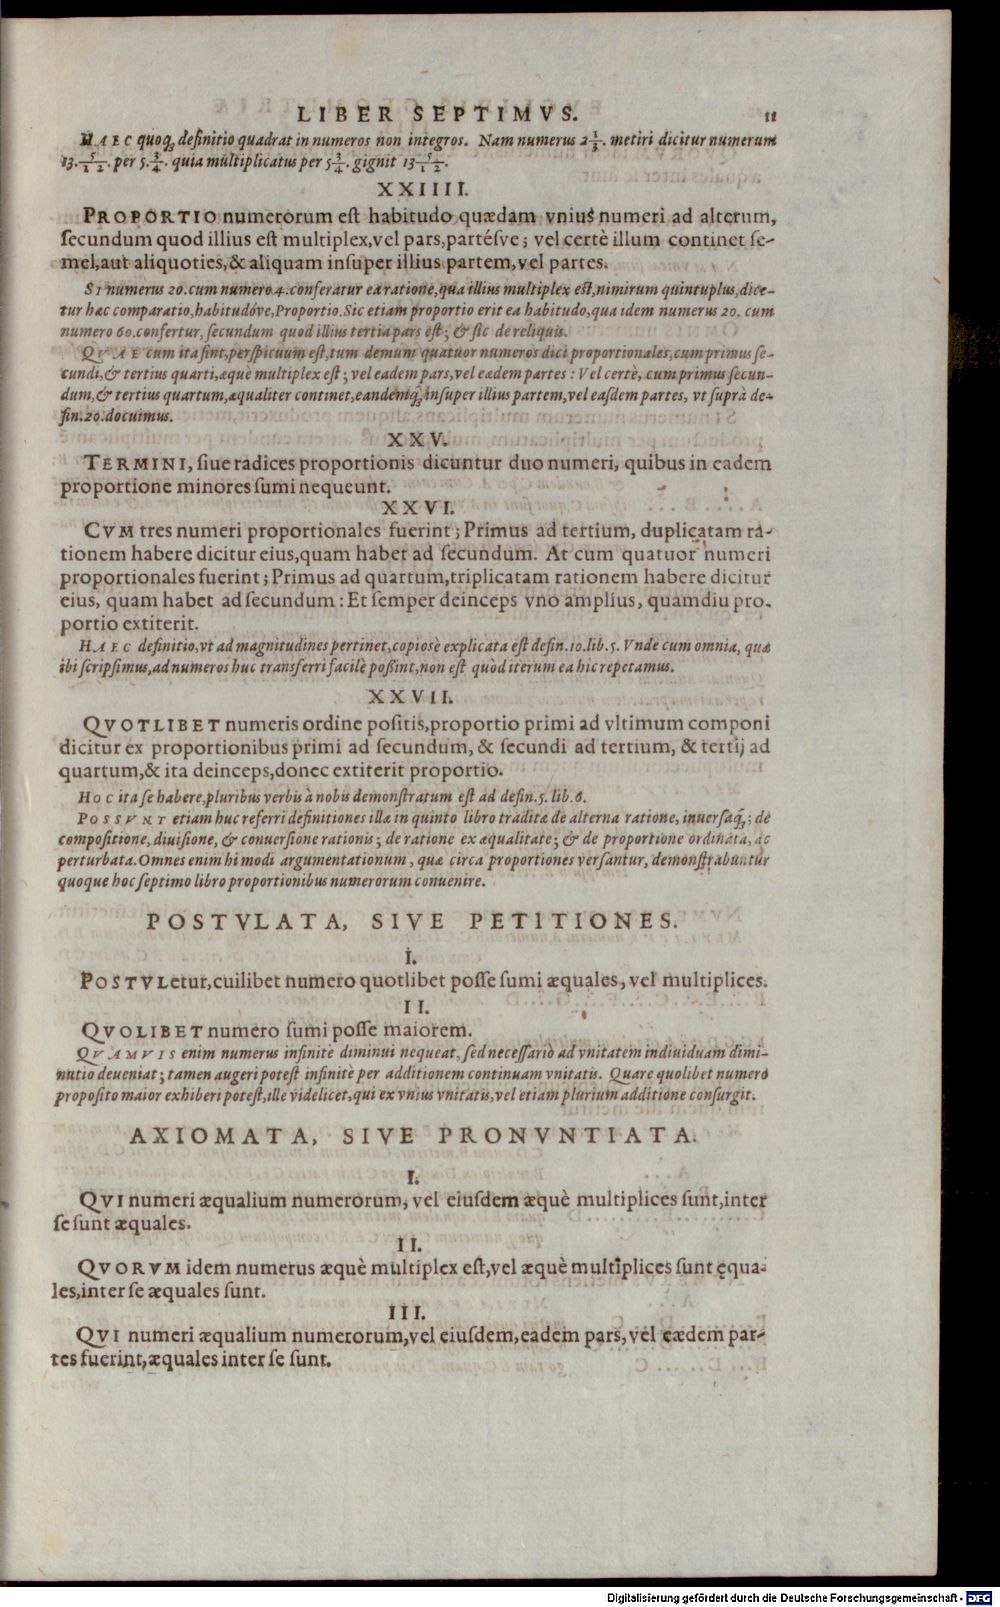 LIBER SEPTIMVS. 11
HAEC quoq; definitio quadrat in numeros non integros. Nam numerus 2 1/3. metiri dicitur numerum
13. 5/12. per 5. 3/4. quia multiplicatus per 5 3/4. gignit 13 5/12.
XXIIII.
PROPORTIO numerorum est habitudo quædam vnius numeri ad alterum,
secundum quod illius est multiplex, vel pars, partésve; vel certè illum continet se-
mel, aut aliquoties, & aliquam insuper illius partem, vel partes.
SI numerus 20. cum numero 4. conferatur ea ratione, qua illius multiplex est, nimirum quintuplus, dice-
tur hæc comparatio, habitudóve, Proportio. Sic etiam proportio erit ea habitudo, qua idem numerus 20. cum
numero 60. confertur, secundum quod illius tertia pars est; & sic de reliquis.
QVAE cum ita sint, perspicuum est, tum demum quatuor numeros dici proportionales, cum primus se-
cundi, & tertius quarti, æquè multiplex est; vel eadem pars, vel eædem partes: Vel certè, cum primus secun-
dum, & tertius quartum, æqualiter continet, eandemq; insuper illius partem, vel easdem partes, vt suprà de-
fin. 20. docuimus.
XXV.
TERMINI, siue radices proportionis dicuntur duo numeri, quibus in eadem
proportione minores sumi nequeunt.
XXVI.
CVM tres numeri proportionales fuerint; Primus ad tertium, duplicatam ra-
tionem habere dicitur eius, quam habet ad secundum. At cum quatuor numeri
proportionales fuerint; Primus ad quartum, triplicatam rationem habere dicitur
eius, quam habet ad secundum: Et semper deinceps vno amplius, quamdiu pro-
portio extiterit.
HAEC definitio, vt ad magnitudines pertinet, copiosè explicata est defin. 10. lib. 5. Vnde cum omnia, quæ
ibi scripsimus, ad numeros huc transferri facilè possint, non est quòd iterum ea hic repetamus.
XXVII.
QVOTLIBET numeris ordine positis, proportio primi ad vltimum componi
dicitur ex proportionibus primi ad secundum, & secundi ad tertium, & tertij ad
quartum, & ita deinceps, donec extiterit proportio.
HOC ita se habere, pluribus verbis à nobis demonstratum est ad defin. 5. lib. 6.
POSSVNT etiam huc referri definitiones illæ in quinto libro traditæ de alterna ratione, inuersaq;; de
compositione, diuisione, & conuersione rationis; de ratione ex æqualitate; & de proportione ordinata, ac
perturbata. Omnes enim hi modi argumentationum, quæ circa proportiones versantur, demonstrabuntur
quoque hoc septimo libro proportionibus numerorum conuenire.
POSTVLATA, SIVE PETITIONES.
I.
POSTVLetur, cuilibet numero quotlibet posse sumi æquales, vel multiplices.
II.
QVOLIBET numero sumi posse maiorem.
QVAMVIS enim numerus infinitè diminui nequeat, sed necessariò ad vnitatem indiuiduam dimi-
nutio deueniat; tamen augeri potest infinitè per additionem continuam vnitatis. Quare quolibet numero
proposito maior exhiberi potest, ille videlicet, qui ex vnius vnitatis, vel etiam plurium additione consurgit.
AXIOMATA, SIVE PRONVNTIATA.
I.
QVI numeri æqualium numerorum, vel eiusdem æquè multiplices sunt, inter
se sunt æquales.
II.
QVORVM idem numerus æquè multiplex est, vel æquè multiplices sunt ęqua-
les, inter se æquales sunt.
III.
QVI numeri æqualium numerorum, vel eiusdem, eadem pars, vel eædem par-
tes fuerint, æquales inter se sunt.
Digitalisierung gefördert durch die Deutsche Forschungsgemeinschaft - DFG